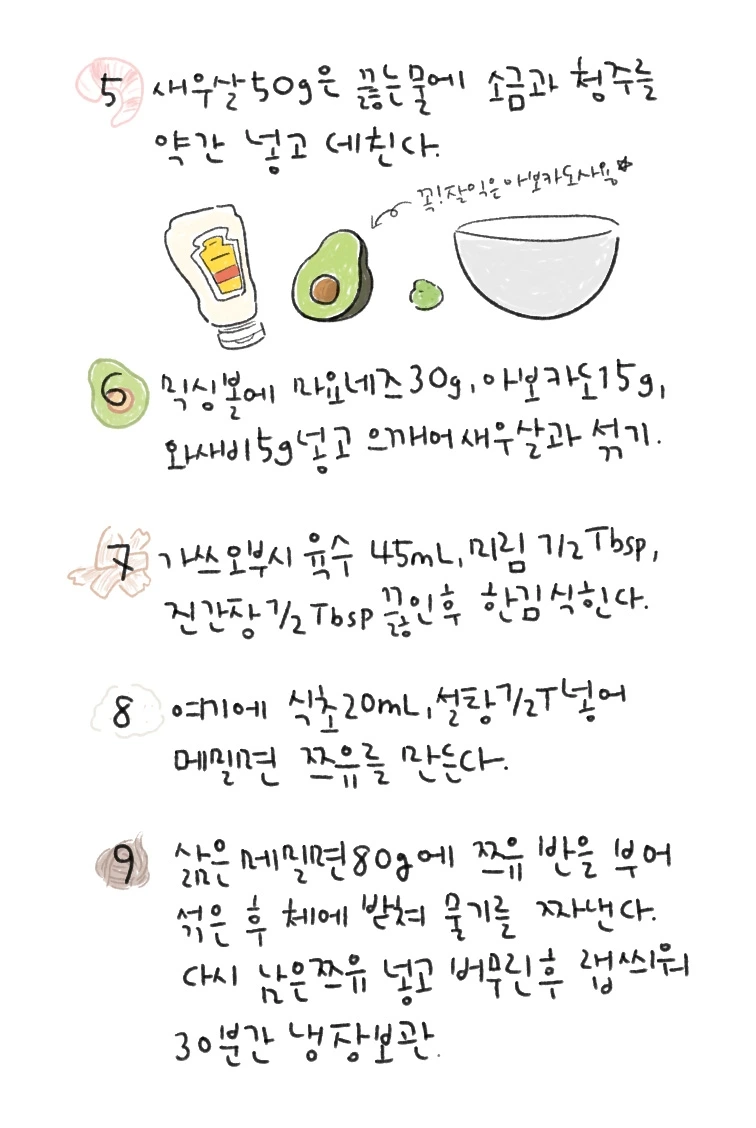 5 새우살 50g은 끓는물에 소금과 청주를
약간 넣고 데친다.
꼭! 잘익은 아보카도사용☆
6 믹싱볼에 마요네즈30g, 아보카도15g,
와사비5g넣고 으깨어 새우살과 섞기.
7 가쓰오부시 육수 45mL, 미림 1/2Tbsp,
진간장 1/2Tbsp 끓인후 한김식힌다.
8 여기에 식초20mL, 설탕1/2T넣어
메밀면 쯔유를 만든다.
9 삶은 메밀면80g에 쯔유 반을 부어
섞은 후 체에 받쳐 물기를 짜낸다.
다시 남은쯔유 넣고 버무린후 랩씌워
30분간 냉장보관.